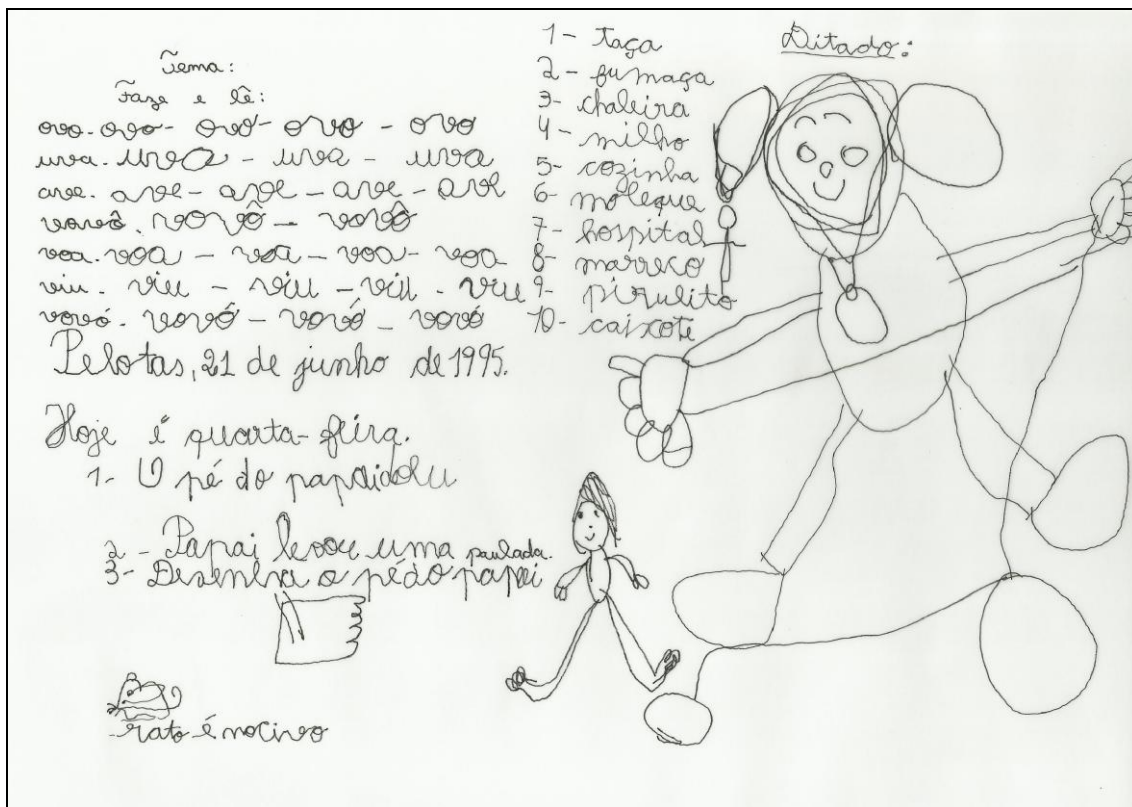 Tema:
Faze e lê:
ovo. ovo - ovo - ovo - ovo
uva. uva - uva - uva
ave. ave - ave - ave - ave
vovô. vovô - vovô
voa. voa - voa - voa - voa
viu. viu - viu - viu - viu
vovó. vovó - vovó - vovó
Pelotas, 21 de junho de 1995.
Hoje é quarta-feira.
1- O pé do papai doeu
2- Papai levou uma paulada.
3- Desenha o pé do papai
rato é nocivo
Ditado:
1- Taça
2- fumaça
3- chaleira
4- milho
5- cozinha
6- moleque
7- hospital
8- marreco
9- pirulito
10- caixote